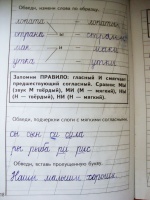 Обведи, измени слова по образцу.
лопата - лопаты
страна -
мак - маки
утка - утки
Запомни ПРАВИЛО: гласный И смягчает
предшествующий согласный. Сравни: МЫ
(звук М твёрдый), МИ (М — мягкий), НЫ
(Н — твёрдый), НИ (Н — мягкий).
Обведи, подчеркни слоги с мягкими согласными.
сы
ры рыба ри рис
Обведи, вставь пропущенную букву.
Наши малыши хороши.